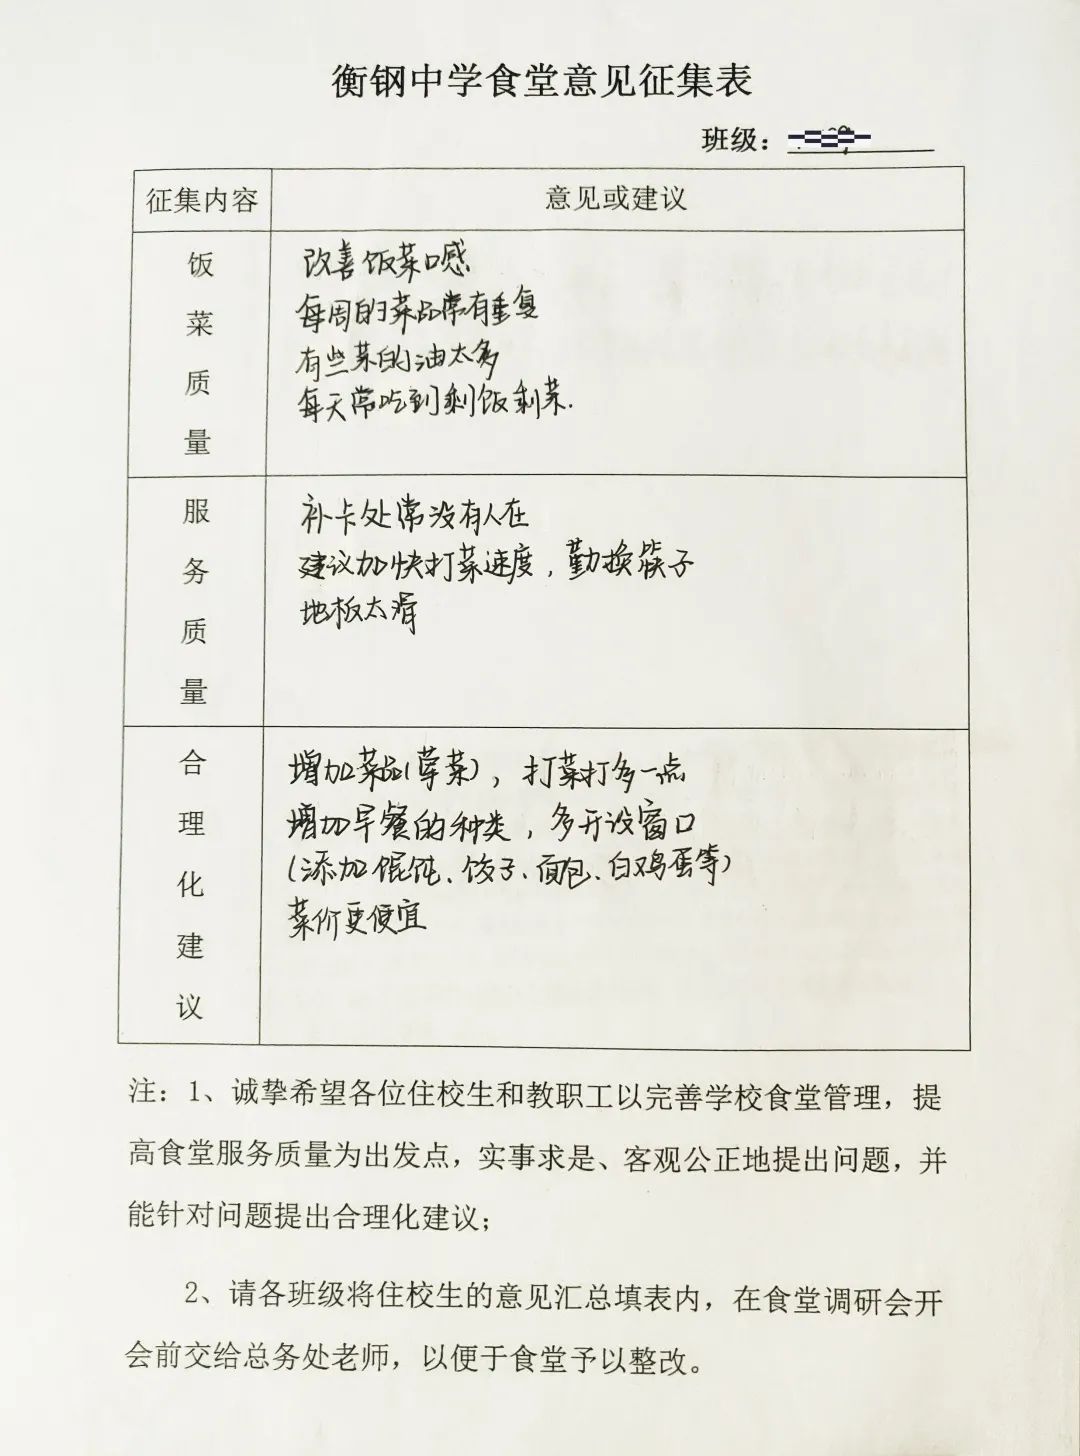 衡钢中学食堂意见征集表
班级：
征集内容 意见或建议
饭菜质量
改善饭菜口感
每周的菜品常有重复
有些菜的油太多
每天常吃到剩饭剩菜.
服务质量
补卡处常没有人在
建议加快打菜速度，勤换筷子
地板太滑
合理化建议
增加菜品(荤菜)，打菜打多一点
增加早餐的种类，多开设窗口
(添加馄饨、饺子、面包、白鸡蛋等)
菜价更便宜
注：1、诚挚希望各位住校生和教职工以完善学校食堂管理，提
高食堂服务质量为出发点，实事求是、客观公正地提出问题，并
能针对问题提出合理化建议；
2、请各班级将住校生的意见汇总填表内，在食堂调研会开
会前交给总务处老师，以便于食堂予以整改。